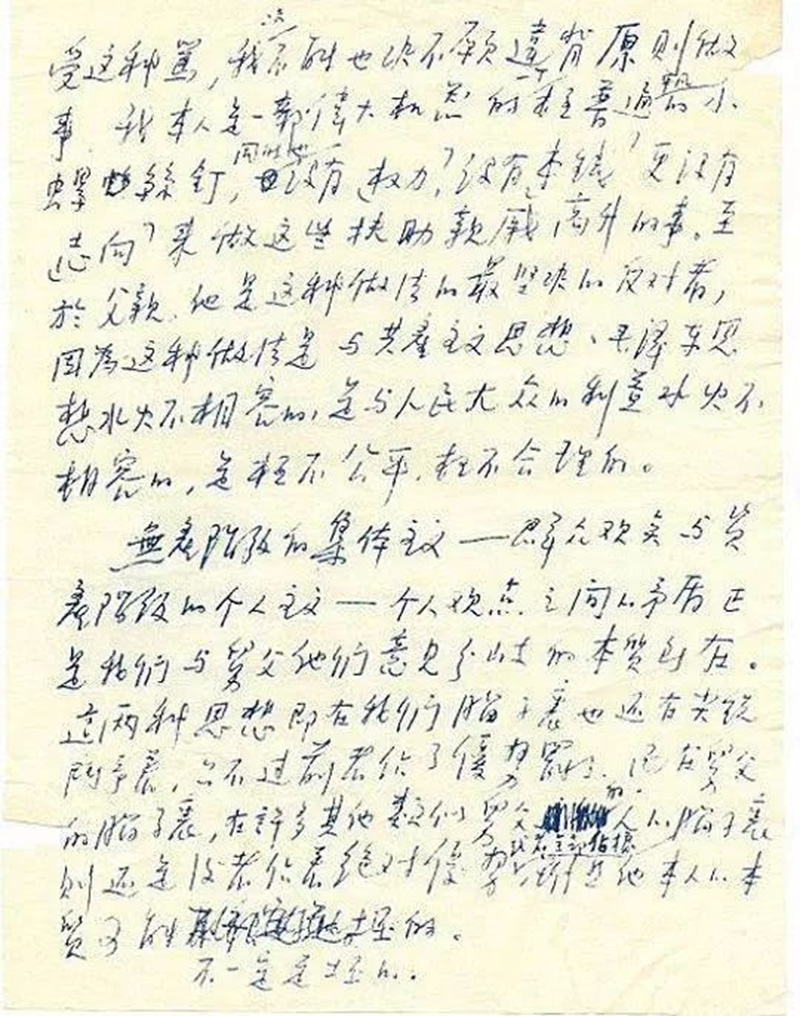 受这种骂,我决不能也决不愿違背原则做
事,我本人是一部偉大机器的極普通平凡的小
螺絲钉,同时也没有“权力”,没有“本錢”,更没有
“志向”来做这些扶助親戚高升的事。至
於父親,他是这种做法的最坚决的反对者,
因為这种做法是与共產主义思想、毛泽东思
想水火不相容的,是与人民大众的利益水火不
相容的,是極不公平,極不合理的。
無產階级的集体主义——群众观点与资
產階级的个人主义——个人观点之间的矛盾正
是我们与舅父他们意见分歧的本质所在。
这两种思想即在我们脑子裏也还在尖锐
鬥争着,只不过前者佔了優势罷了。而在舅父
的脑子裏,在許多其他類似舅父的人的脑子裏
则还是後者佔着绝对優势,或者全部佔據,雖然他本人的本
質可能
不一定是坏的。